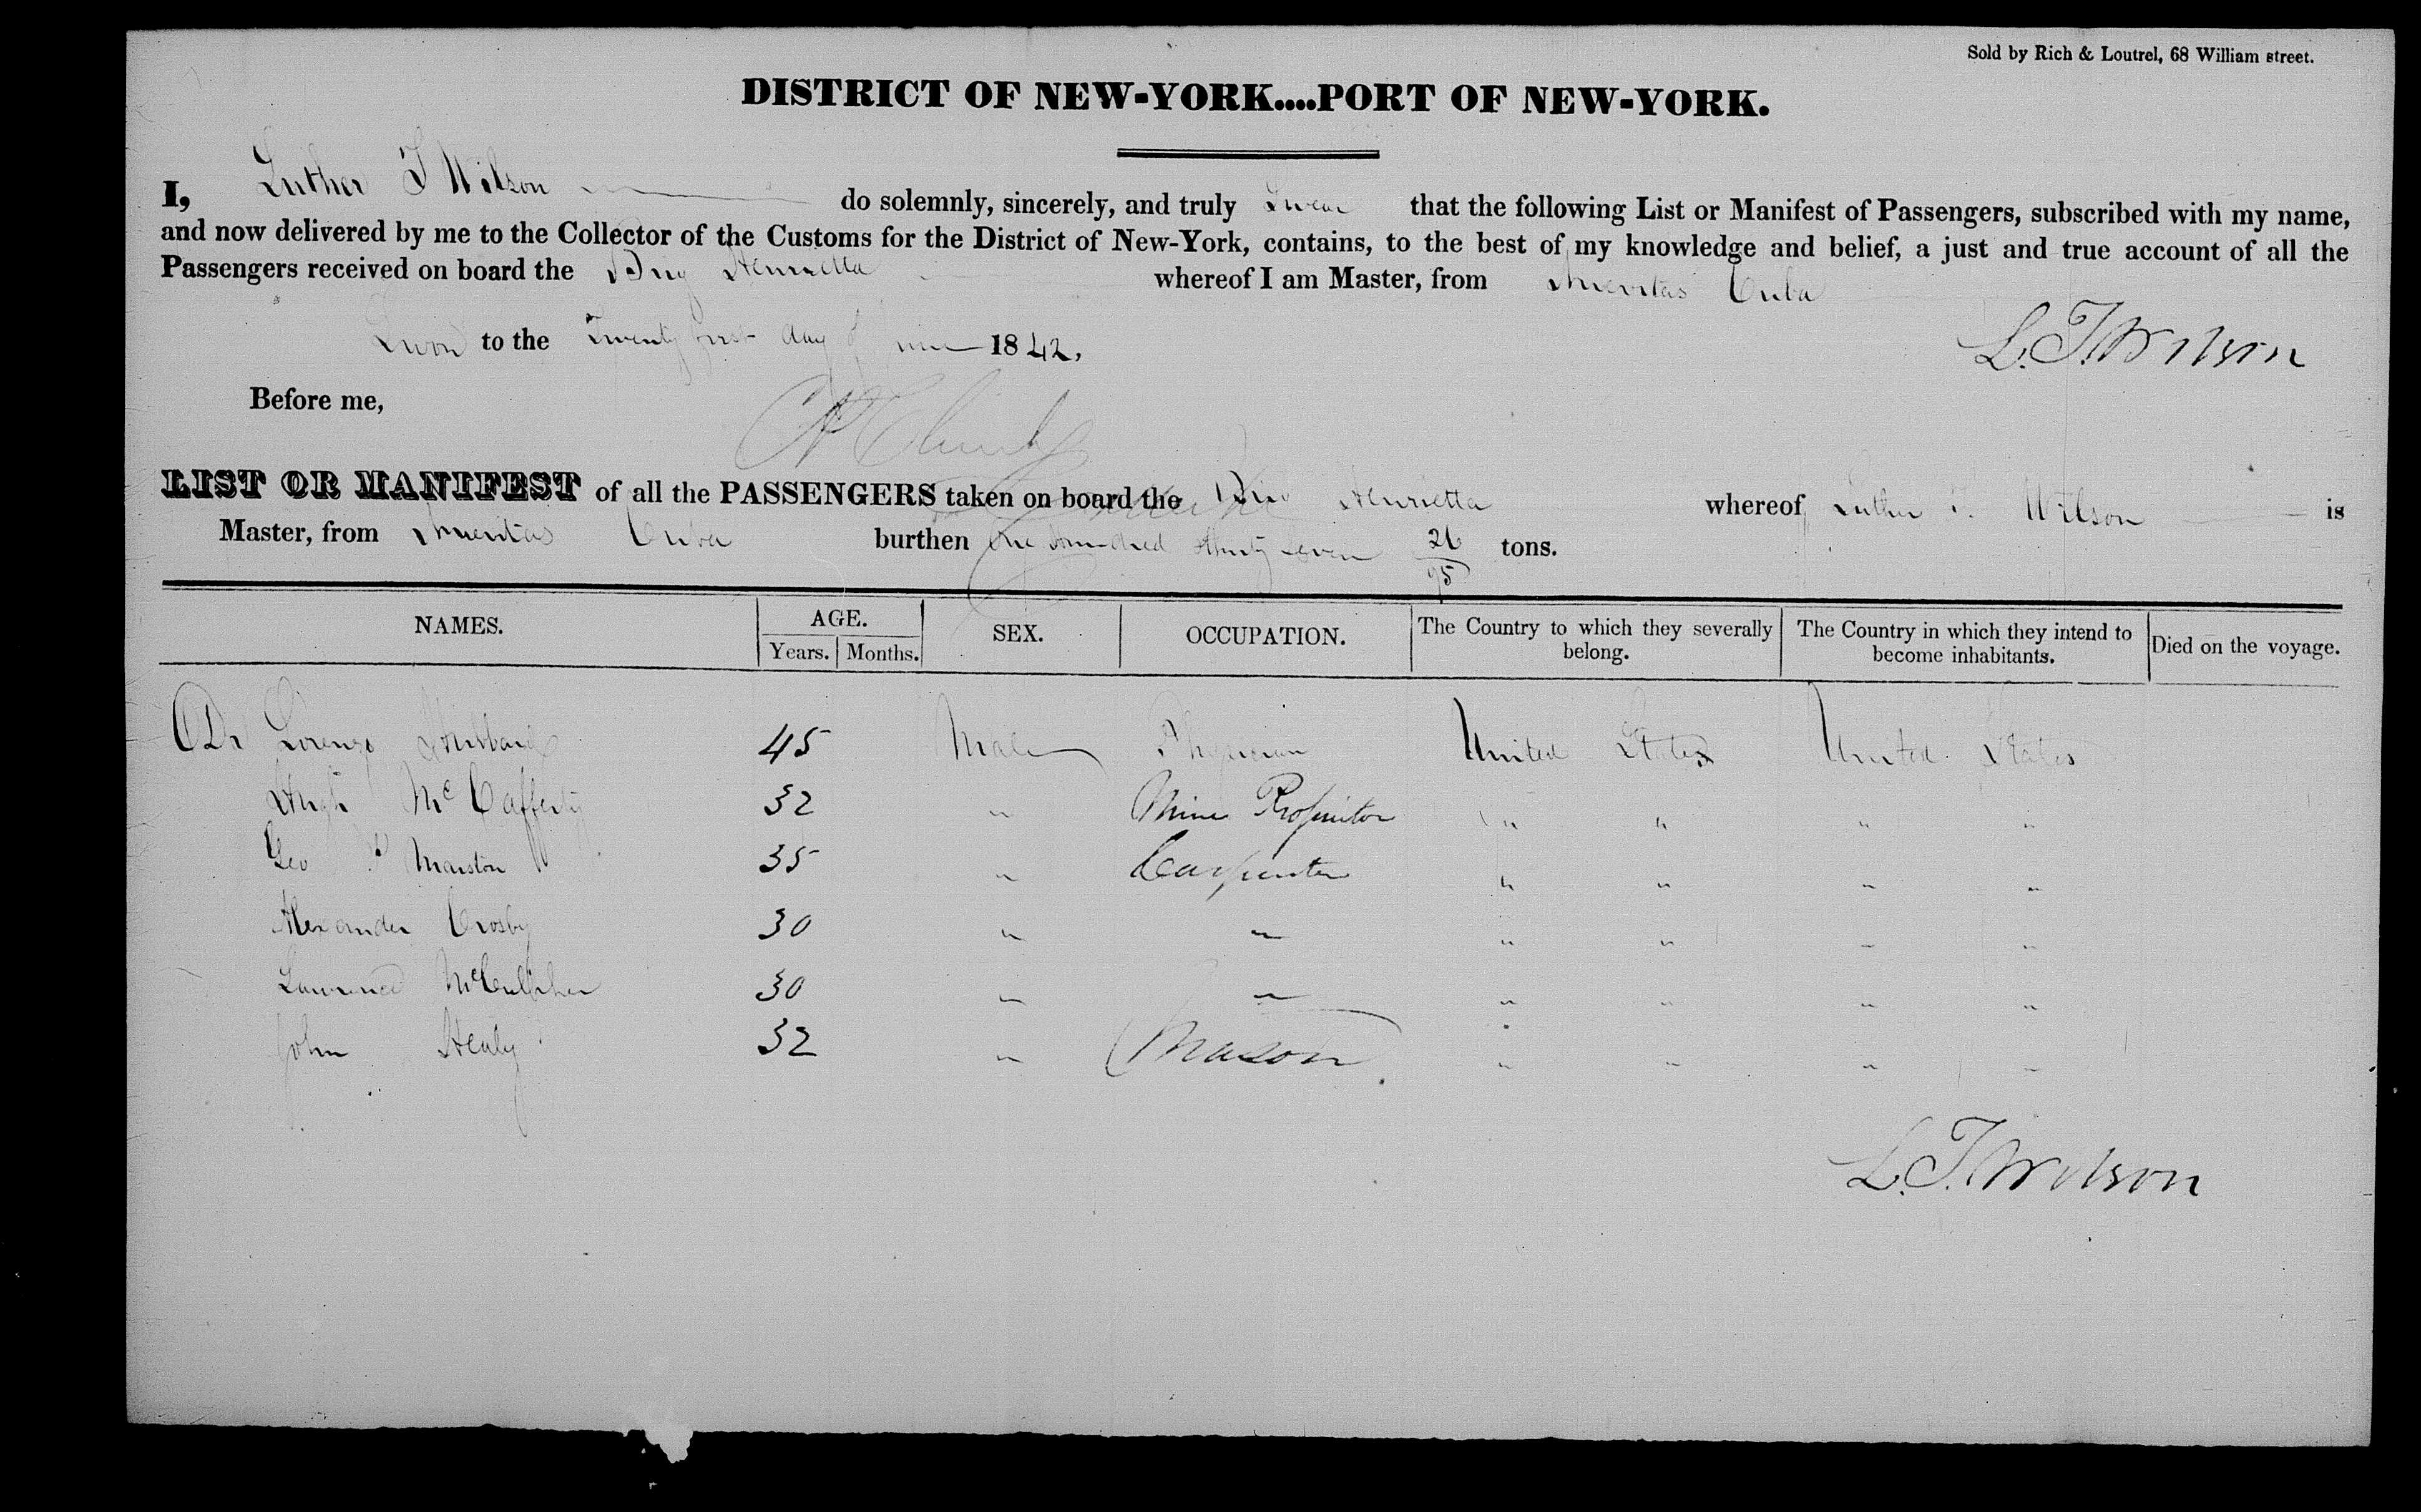 Sold by Rich & Loutrel, 68 William street.
DISTRICT OF NEW-YORK....PORT OF NEW-YORK.
I, Luther T Wilson do solemnly, sincerely, and truly Swear that the following List or Manifest of Passengers, subscribed with my name,
and now delivered by me to the Collector of the Customs for the District of New-York, contains, to the best of my knowledge and belief, a just and true account of all the
Passengers received on board the Brig Henrietta whereof I am Master, from Nuevitas Cuba
Sworn to the Twenty first day of June 1842.
L. T. Wilson
Before me,
LIST OR MANIFEST of all the PASSENGERS taken on board the Brig Henrietta whereof Luther T. Wilson is
Master, from Nuevitas Cuba burthen One Hundred thirty seven 26/95 tons.
NAMES. AGE. SEX. OCCUPATION. The Country to which they severally belong. The Country in which they intend to become inhabitants. Died on the voyage.
Years. Months.
Dr Lorenzo Hubbard 45 Male Physician United States United States
Hugh McCafferty 32 " Mine Proprietor " " " "
Geo P Marston 35 " Carpenter " " " "
Alexander Crosby 30 " " " " " "
Lawrence 30 " " " " " "
John Healy 32 " Mason " " " "
L. T. Wilson